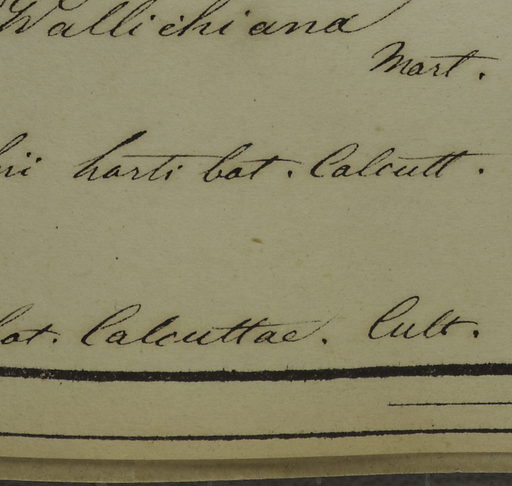 Wallichiana
Mart.
horti bot. Calcutt.
bot. Calcuttae. Cult.